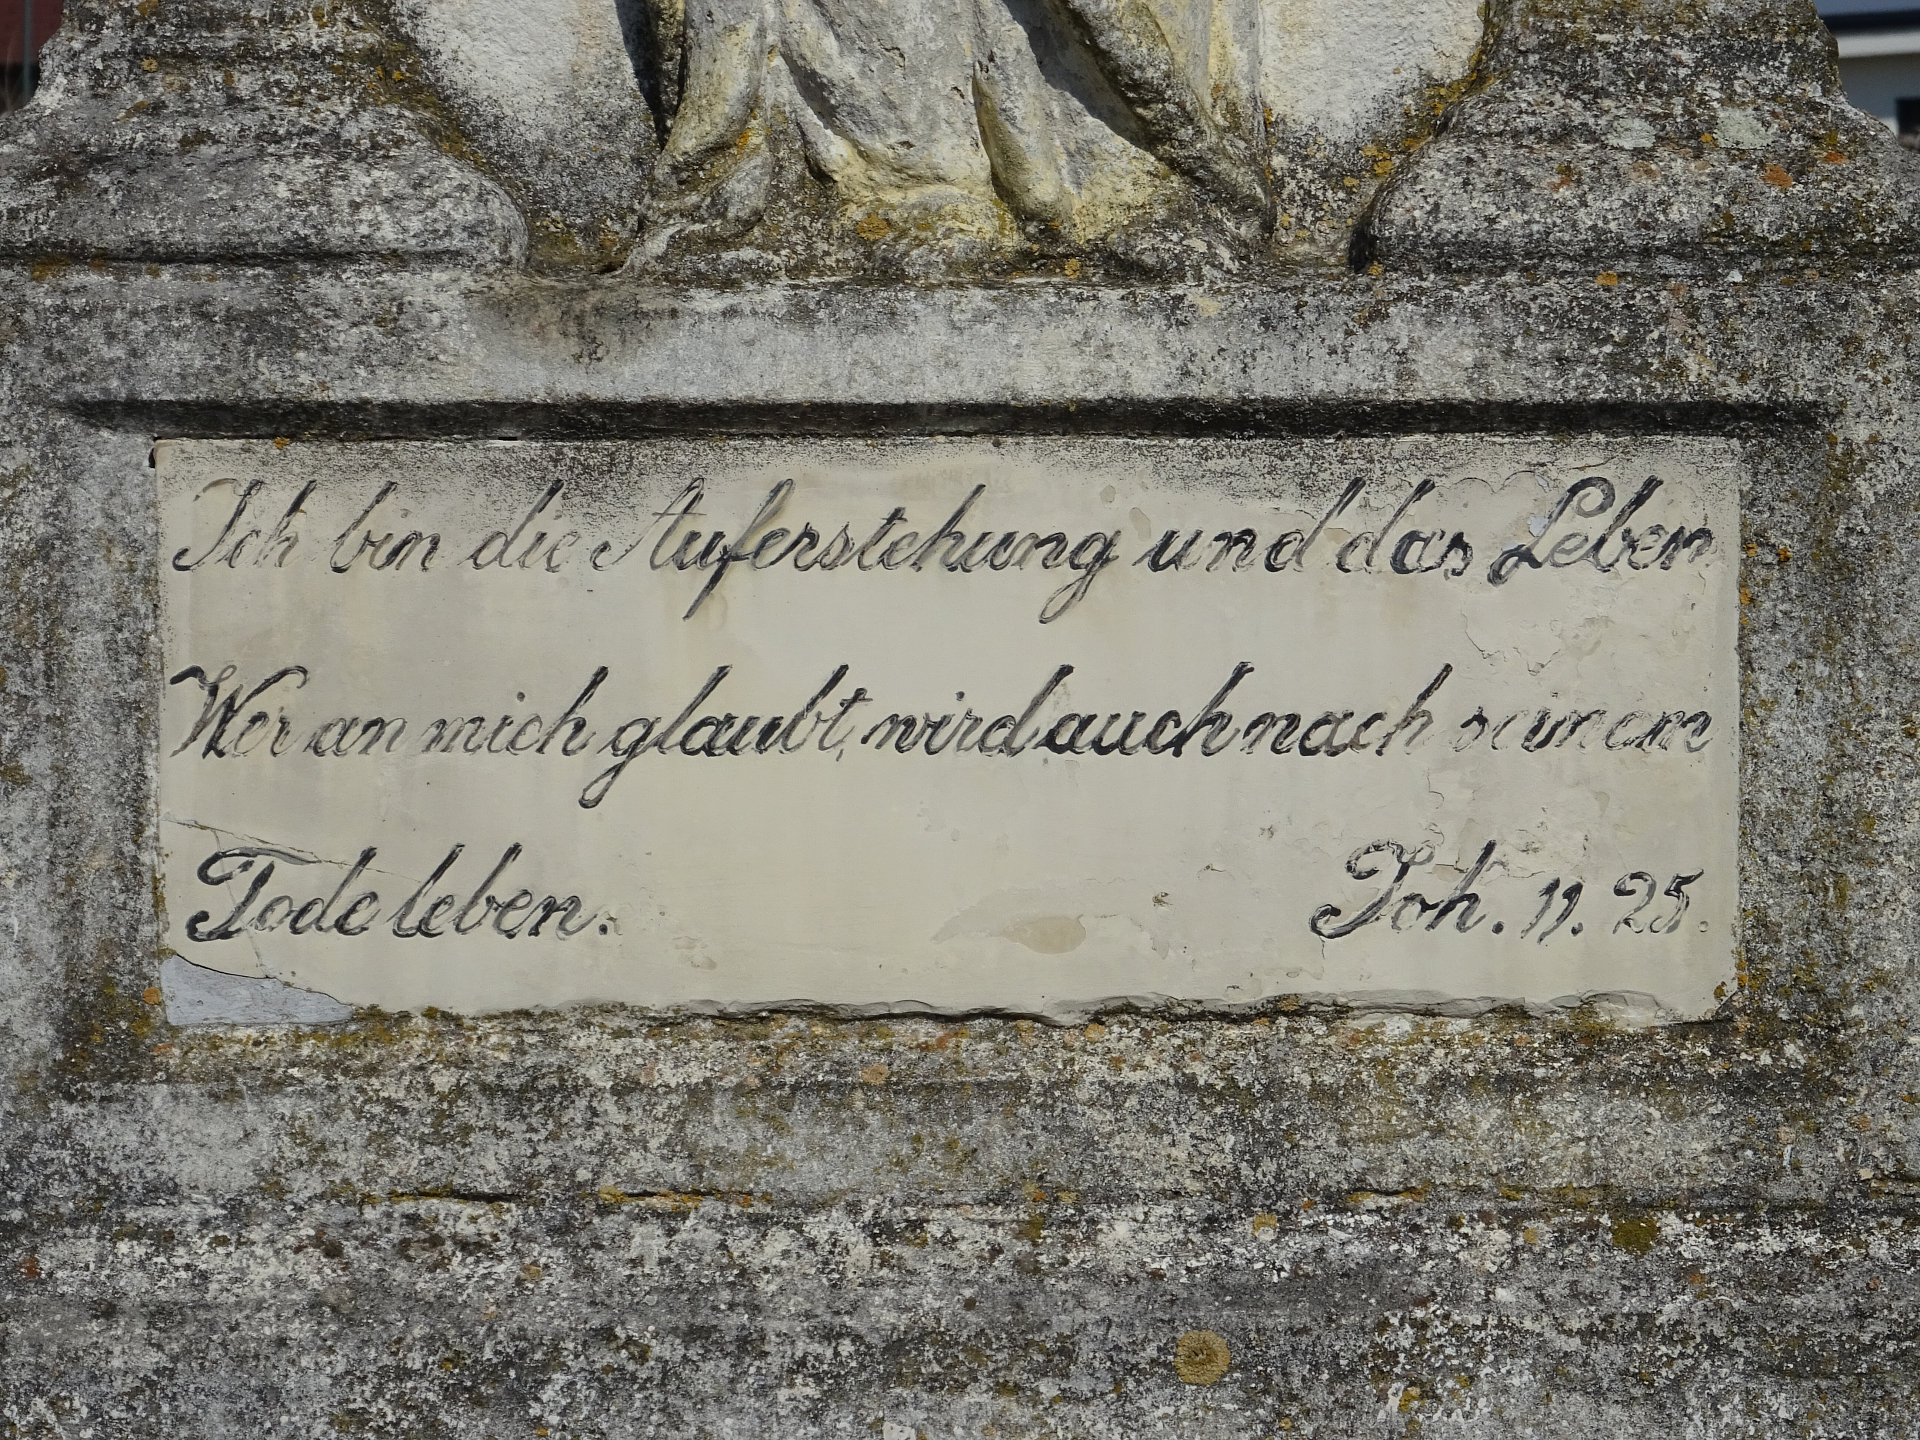 Ich bin die Auferstehung und das Leben
Wer an mich glaubt, wird auch nach seinem
Tode leben.
Joh. 11. 25.